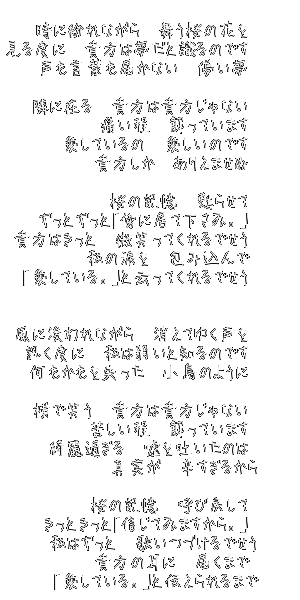 時に撒かれながら 舞う桜の花を
見る度に 貴方は夢だと識るのです
声も言葉も届かない 儚い夢
隣に在る 貴方は貴方じゃない
痛い程 誤っています
愛しているの 愛しいのです
貴方しか ありえませぬ
桜の記憶 散らせて
ずっとずっと「傍に居て下さゐ。」
貴方はきっと 微笑ってくれるでせう
私の涙を 包み込んで
「愛している。」と云ってくれるでせう
風に浚われながら 消えてゆく声を
訊く度に 私は弱いと知るのです
何もかもを失った 小鳥のように
横で笑う 貴方は貴方じゃない
苦しい程 誤っています
綺麗過ぎる 嘘を吐いたのは
真実が 辛すぎるから
桜の記憶 呼び戻して
きっときっと「信じてゐますから。」
私はずっと 歌いつづけるでせう
貴方の耳に 届くまで
「愛している。」と伝えられるまで